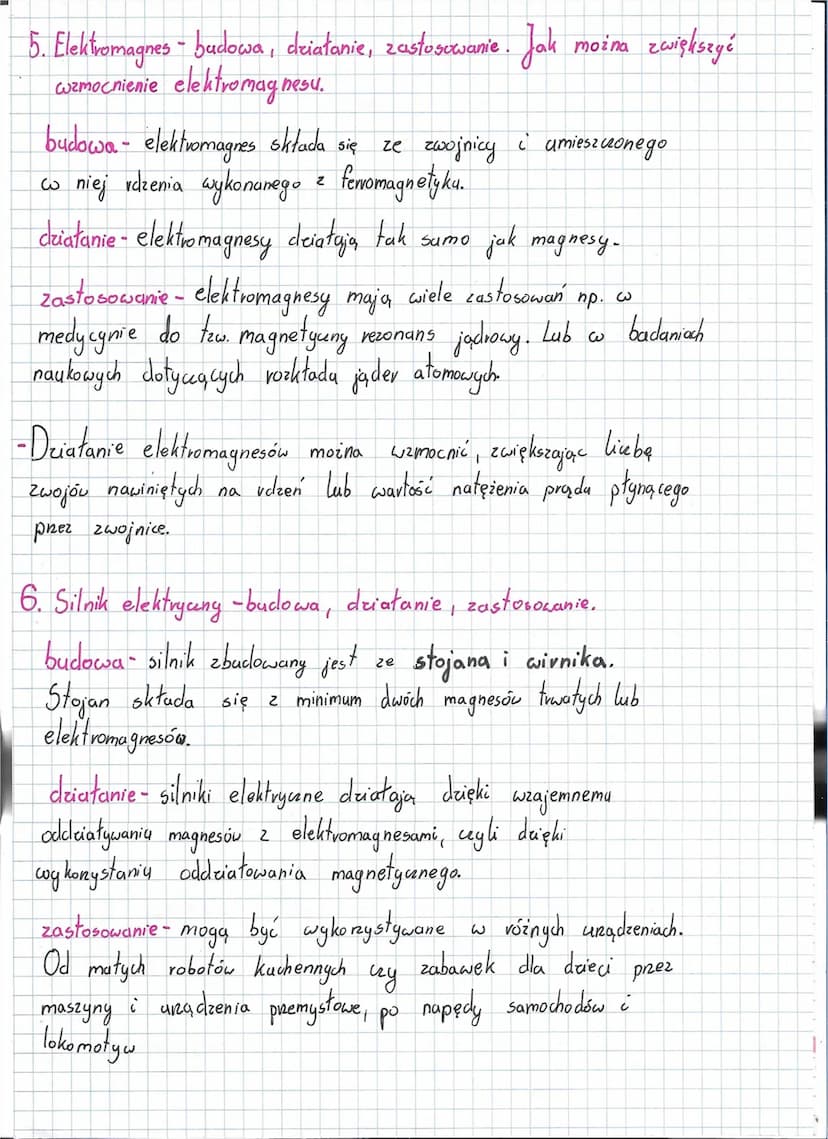 5. Elektromagnes - budowa, działanie, zastosowanie. Jak można zwiększyć
wzmocnienie elektromagnesu.
budowa - elektromagnes składa się ze zwojnicy i umieszczonego
w niej rdzenia wykonanego z ferromagnetyku.
działanie - elektromagnesy działają tak samo jak magnesy.
zastosowanie - elektromagnesy mają wiele zastosowań np. w
medycynie do tzw. magnetyczny rezonans jądrowy. Lub w badaniach
naukowych dotyczących rozkładu jąder atomowych.
- Działanie elektromagnesów można wzmocnić, zwiększając liczbę
zwojów nawiniętych na rdzeń lub wartość natężenia prądu płynącego
przez zwojnice.
6. Silnik elektryczny - budowa, działanie, zastosowanie.
budowa - silnik zbudowany jest ze stojana i wirnika.
Stojan składa się z minimum dwóch magnesów trwałych lub
elektromagnesów.
działanie - silniki elektryczne działają dzięki wzajemnemu
oddziaływaniu magnesów z elektromagnesami, czyli dzięki
wykorzystaniu oddziałowania magnetycznego.
zastosowanie - mogą być wykorzystywane w różnych urządzeniach.
Od małych robotów kuchennych czy zabawek dla dzieci przez
maszyny i urządzenia przemysłowe, po napędy samochodów i
lokomotyw